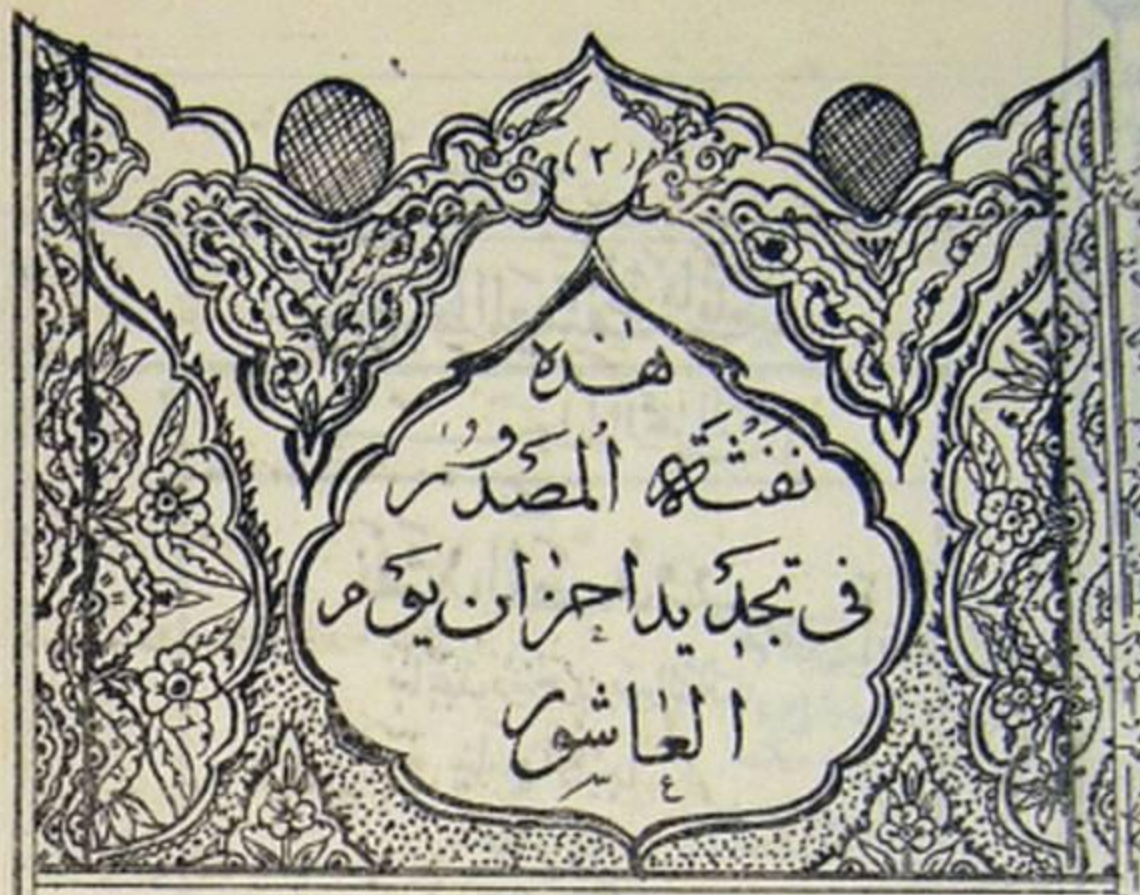 (٢)
هٰذه
نَفثَةُ المَصدُور
فى تجديد احزان يوم
العاشور